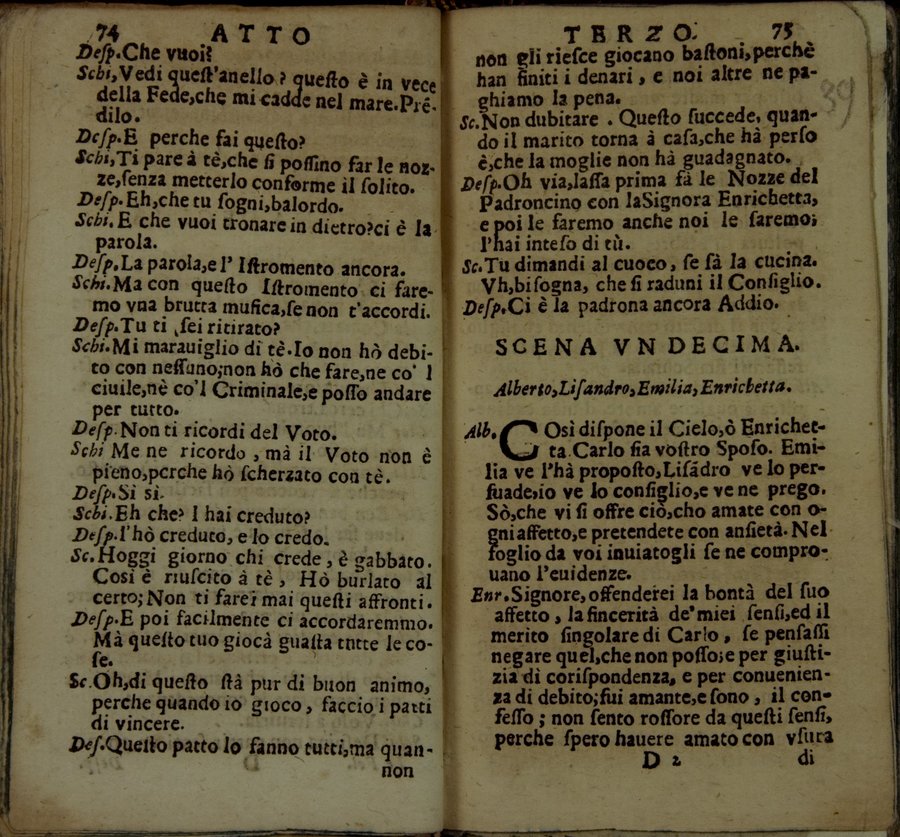 74 ATTO
Desp.Che vuoi?
Schi,Vedi quest'anello? questo è in vece
della Fede,che mi cadde nel mare.Pré-
dilo.
Desp.E perche fai questo?
Schi,Ti pare à tè,che si possino far le noz-
ze,senza metterlo conforme il solito.
Desp.Eh,che tu sogni,balordo.
Schi.E che vuoi tronare in dietro?ci è la
parola.
Desp.La parola,e l' Istromento ancora.
Schi.Ma con questo Istromento ci fare-
mo vna brutta musica,se non t'accordi.
Desp.Tu ti sei ritirato?
Schi.Mi marauiglio di tè.Io non hò debi-
to con nessuno;non hò che fare,ne co' l
ciuile,nè co'l Criminale,e posso andare
per tutto.
Desp.Non ti ricordi del Voto.
Schi Me ne ricordo , mà il Voto non è
pieno,perche hò scherzato con tè.
Desp.Si si.
Schi.Eh che? l hai creduto?
Desp.l'hò creduto, e lo credo.
Sc.Hoggi giorno chi crede , è gabbato.
Cosi è riuscito à tè , Hò burlato al
certo; Non ti farei mai questi affronti.
Desp.E poi facilmente ci accordaremmo.
Mà questo tuo giocà guasta tutte le co-
se.
Sc.Oh,di questo stà pur di buon animo,
perche quando io gioco , faccio i patti
di vincere.
Des.Questo patto lo fanno tutti,ma quan-
non
TERZO. 75
39
non gli riesce giocano bastoni,perchè
han finiti i denari , e noi altre ne pa-
ghiamo la pena.
Sc.Non dubitare . Questo succede, quan-
do il marito torna à casa,che hà perso
è,che la moglie non hà guadagnato.
Desp.Oh via,lassa prima fà le Nozze del
Padroncino con laSignora Enrichetta,
e poi le faremo anche noi le faremo;
l'hai inteso di tù.
Sc.Tu dimandi al cuoco, se sà la cucina.
Vh,bisogna, che si raduni il Consiglio.
Desp.Ci è la padrona ancora Addio.
SCENA VNDECIMA.
Alberto,Lisandro,Emilia,Enrichetta.
Alb. COsi dispone il Cielo,ò Enrichet-
ta.Carlo sia vostro Sposo. Emi-
lia ve l'hà proposto,Lisádro ve lo per-
suade,io ve lo consiglio,e ve ne prego.
Sò,che vi si offre ciò,cho amate con o-
gni affetto,e pretendete con ansietà.Nel
foglio da voi inuiatogli se ne compro-
uano l'euidenze.
Enr.Signore, offenderei la bontà del suo
affetto , la sincerità de' miei sensi,ed il
merito singolare di Carlo , se pensassi
negare quel,che non posso;e per giusti-
zia di corispondenza, e per conuenien-
za di debito;fui amante,e sono , il con-
fesso ; non sento rossore da questi sensi,
perche spero hauere amato con vsura
D 2 di